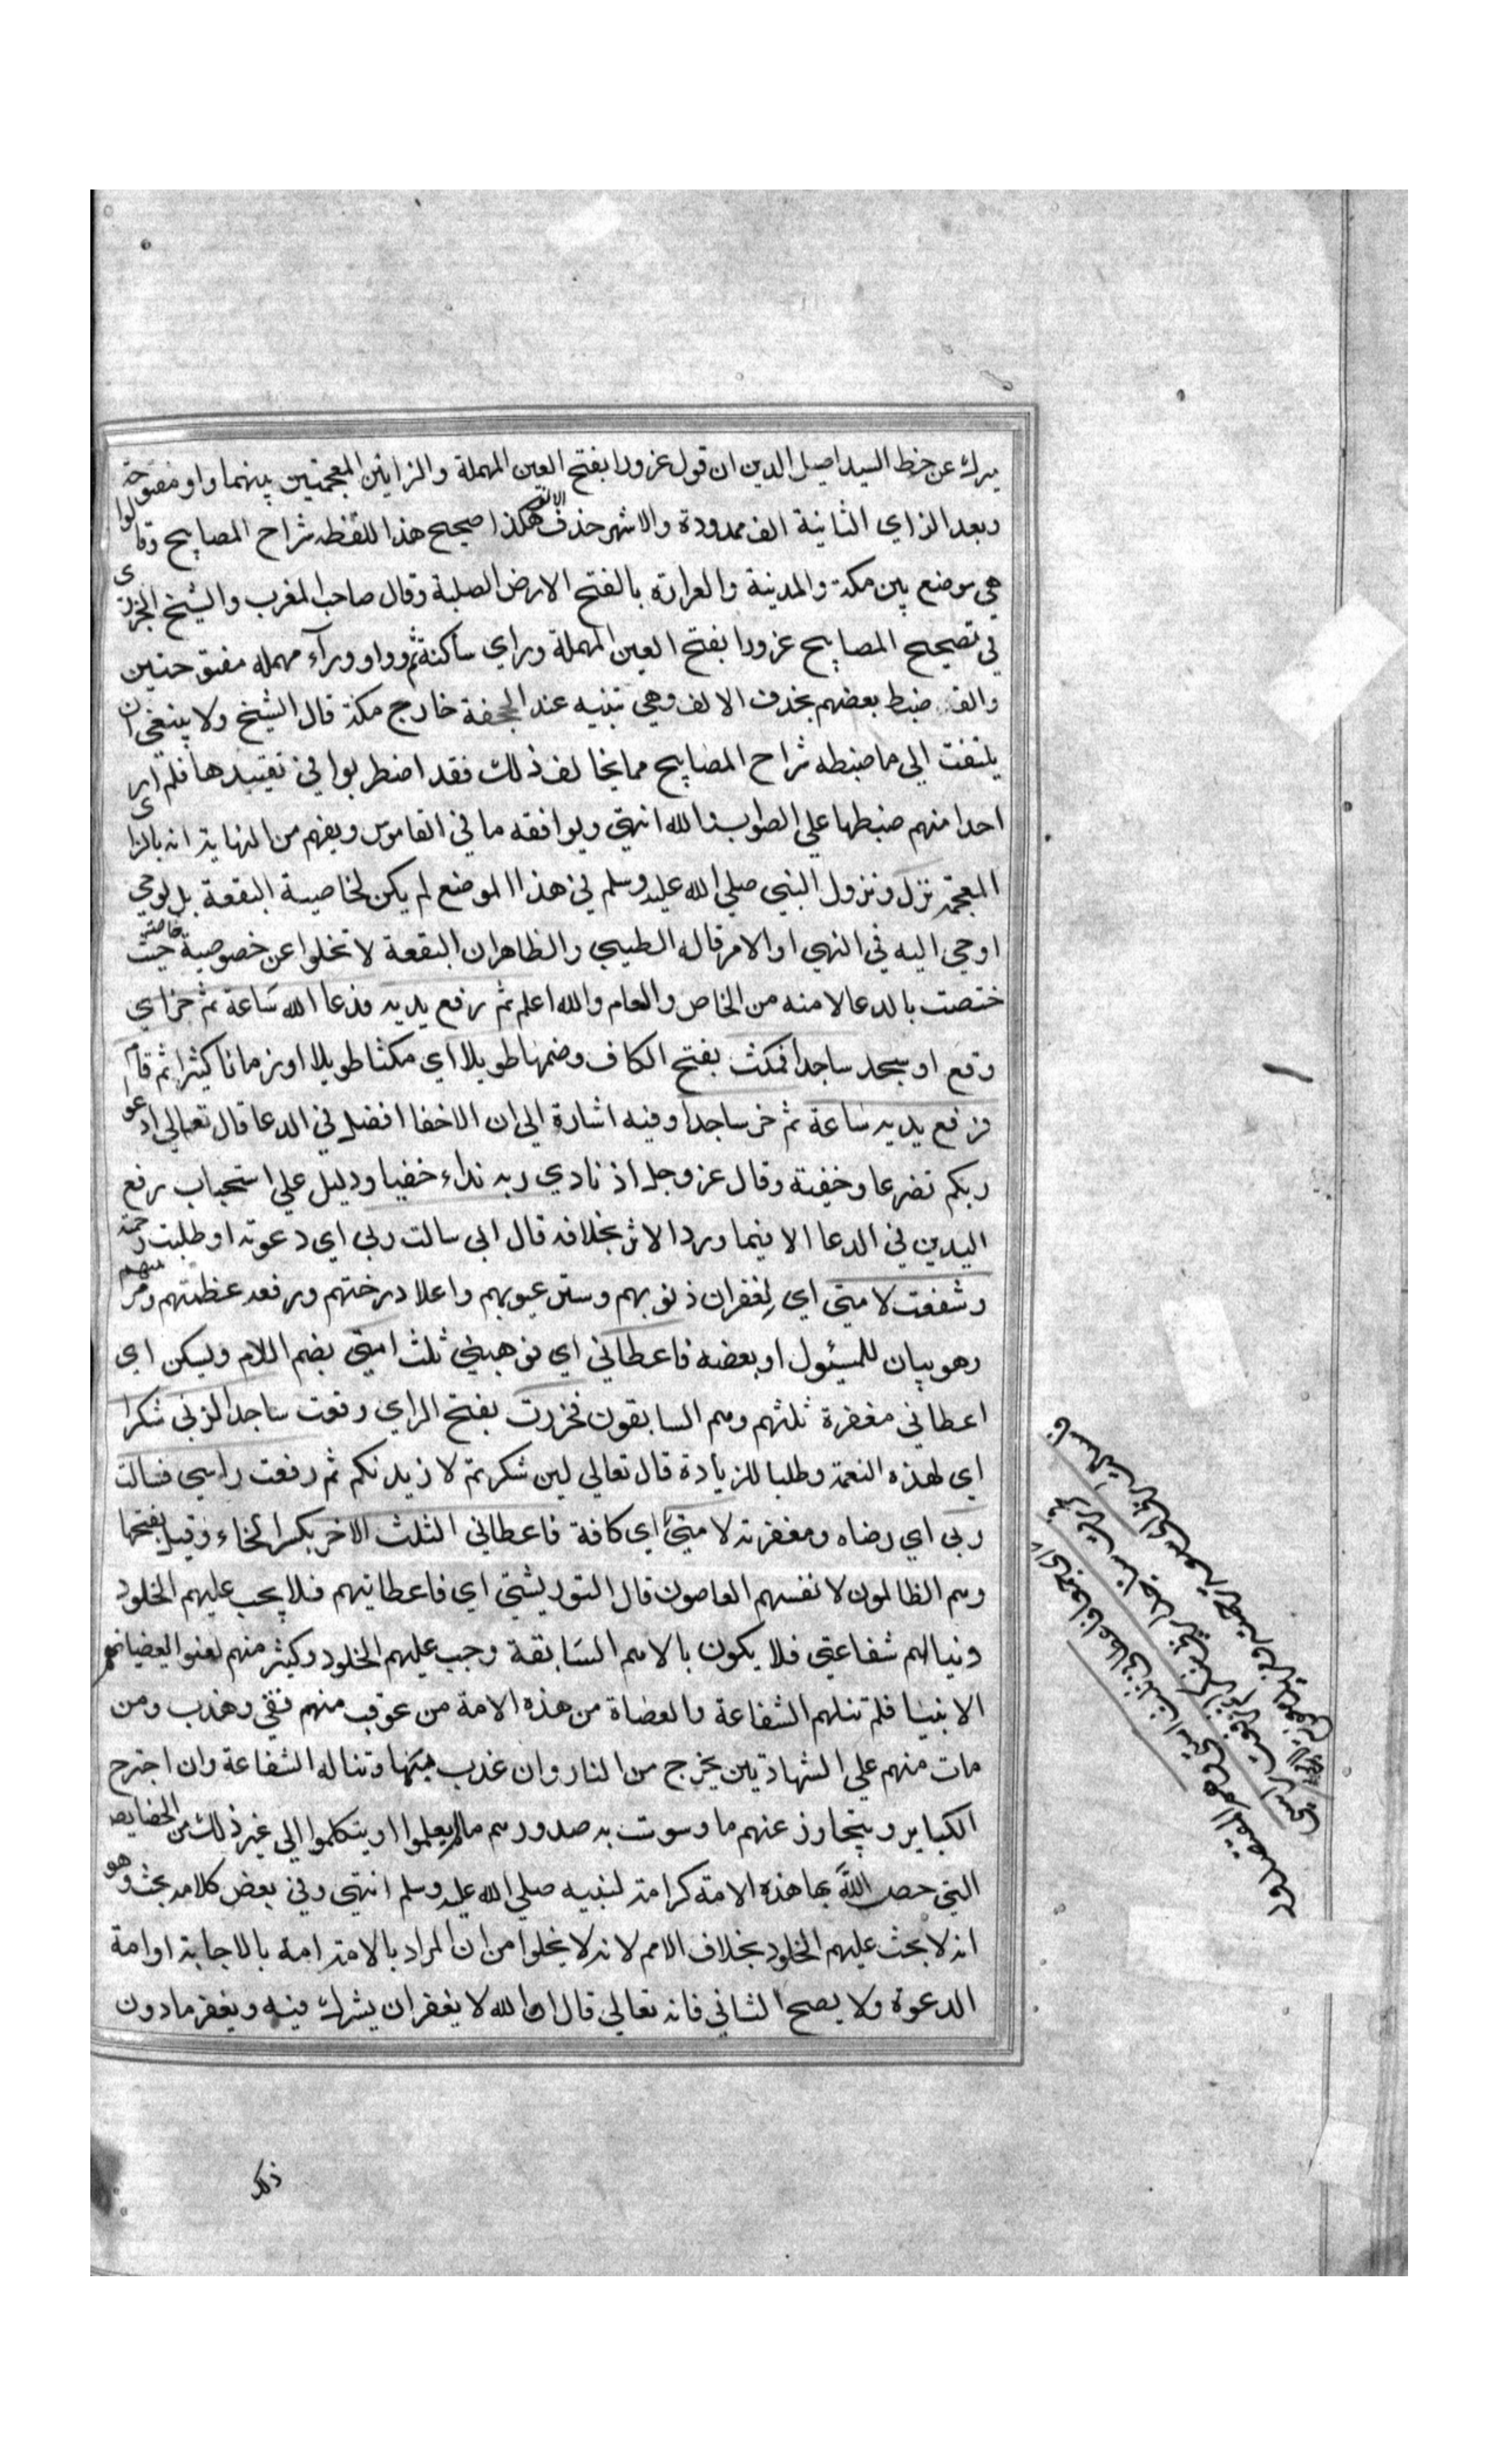 ميرك عن خط السيد اصيل الدين ان قول عزورا بفتح العين المهملة والزايين المعجمتين بينهما واو مفتوحة
وبعد الزاي الثانية الف ممدودة والاشهر حذف الالف هكذا صحيح هذا اللفظه شراح المصابيح وقالوا
هي موضع بين مكة والمدينة والعزازه بالفتح الارض الصلبة وقال صاحب المغرب والشيخ الجزري
في تصحيح المصابيح عزورا بفتح العين المهملة وزاي ساكنة ثم وواو وراء مهمله مفتوحتين
والف ضبط بعضهم بحذف الالف وهي ثنيه عند الجحفة خارج مكة قال الشيخ ولا ينبغي ان
يلتفت الي ما ضبطه شراح المصابيح مما يخالف ذلك فقد اضطربوا في تقييدها فلم ار
احدا منهم ضبطها علي الصواب والله انتهي ويوافقه ما في القاموس ويفهم من النهاية انه بالزاي
المعجمة نزل ونزول النبي صلي الله عليه وسلم في هذا الموضع لم يكن لخاصية البقعة بل لوحي
اوحي اليه في النهي او الامر قاله الطيبي والظاهر ان البقعة لا تخلوا عن خصوصية خاصة حيث
ختصت بالدعا لامته من الخاص والعام والله اعلم ثم رفع يديه فدعا الله ساعة ثم خر اي
وقع او سجد ساجدا فمكث بفتح الكاف وضمها طويلا اي مكثا طويلا او زمانا كثيرا ثم قام
فرفع يديه ساعة ثم خر ساجدا وفيه اشارة الي ان الاخفا افضل في الدعا قال تعالي ادعوا
ربكم تضرعا وخفية وقال عز وجل اذ نادي ربه نداء خفيا ودليل علي استحباب رفع
اليدين في الدعا الا فيما ورد الاثر بخلافه قال اني سالت ربي اي دعوته او طلبت رحمة
وشفعت لامتي اي لغفران ذنوبهم وستر عيوبهم واعلا درجتهم ورفعه عظمتهم ومنهم
وهو بيان للمسئول او بعضه فاعطاني اي فوهبني ثلث امتي بضم اللام ويسكن اي
اعطاني مغفرة ثلثهم وهم السابقون فخررت بفتح الراي وقعت ساجدا لربي شكرا
اي لهذه النعمة وطلبا للزيادة قال تعالي لين شكرتم لازيدنكم ثم رفعت راسي فسالت
ربي اي رضاه ومغفرته لامتي اي كافة فاعطاني الثلث الاخر بكسر الخاء وقيل بفتحها
وهم الظالمون لانفسهم العاصون قال التوربشتي اي فاعطانيهم فلا يجب عليهم الخلود
ونيالهم شفاعتي فلا يكون بالامم السابقة وجب عليهم الخلود وكثير منهم لعنوا لعصيانهم
الانبيا فلم تنلهم الشفاعة والعصاة من هذه الامة من عوقب منهم نقي وهذب ومن
مات منهم علي الشهادتين يخرج من النار وان عذب بها وتناله الشفاعة وان اجترح
الكباير ويتجاوز عنهم ما وسوت به صدورهم ما لم يعلموا او يتكلموا الي غير ذلك من الخصايص
التي خص الله بها هذه الامة كرامة لنبيه صلي الله عليه وسلم انتهي وفي بعض كلامه بحث وهو
انه لا بحث عليهم الخلود بخلاف الامم لانه لا يخلوا من ان المراد بالامة امة بالاجابة او امة
الدعوة ولا يصح الثاني فانه تعالي قال ان الله لا يغفر ان يشرك فيه ويغفر ما دون
ذلك